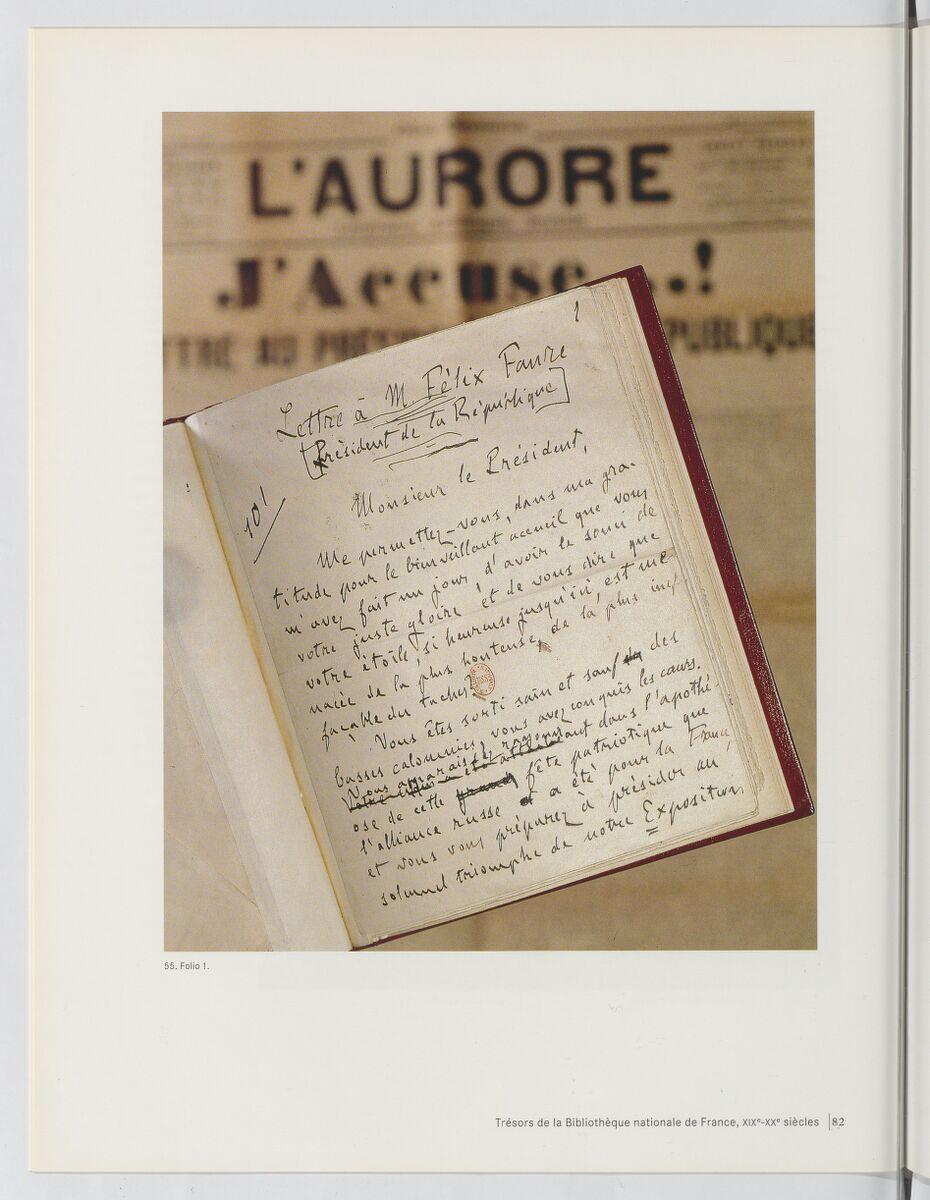 L'AURORE
J'Accuse...!
LETTRE AU PRÉSIDENT RÉPUBLIQUE
1
Lettre à M. Félix Faure
[Président de la République]
Monsieur le Président,
Me permettez-vous, dans ma gra-
titude pour le bienveillant accueil que vous
m'avez fait un jour, d'avoir le souci de
votre juste gloire et de vous dire que
votre étoile, si heureuse jusqu'ici, est me
nacée de la plus honteuse, de la plus inef
façable des taches?
Vous êtes sorti sain et sauf des
basses calomnies, vous avez conquis les cœurs.
Vous apparaissez rayonnant dans l'apothé-
ose de cette fête patriotique que
l'alliance russe a été pour la France,
et vous vous préparez à présider au
solennel triomphe de notre Exposition
55. Folio 1.
Trésors de la Bibliothèque nationale de France, XIXe-XXe siècles | 82